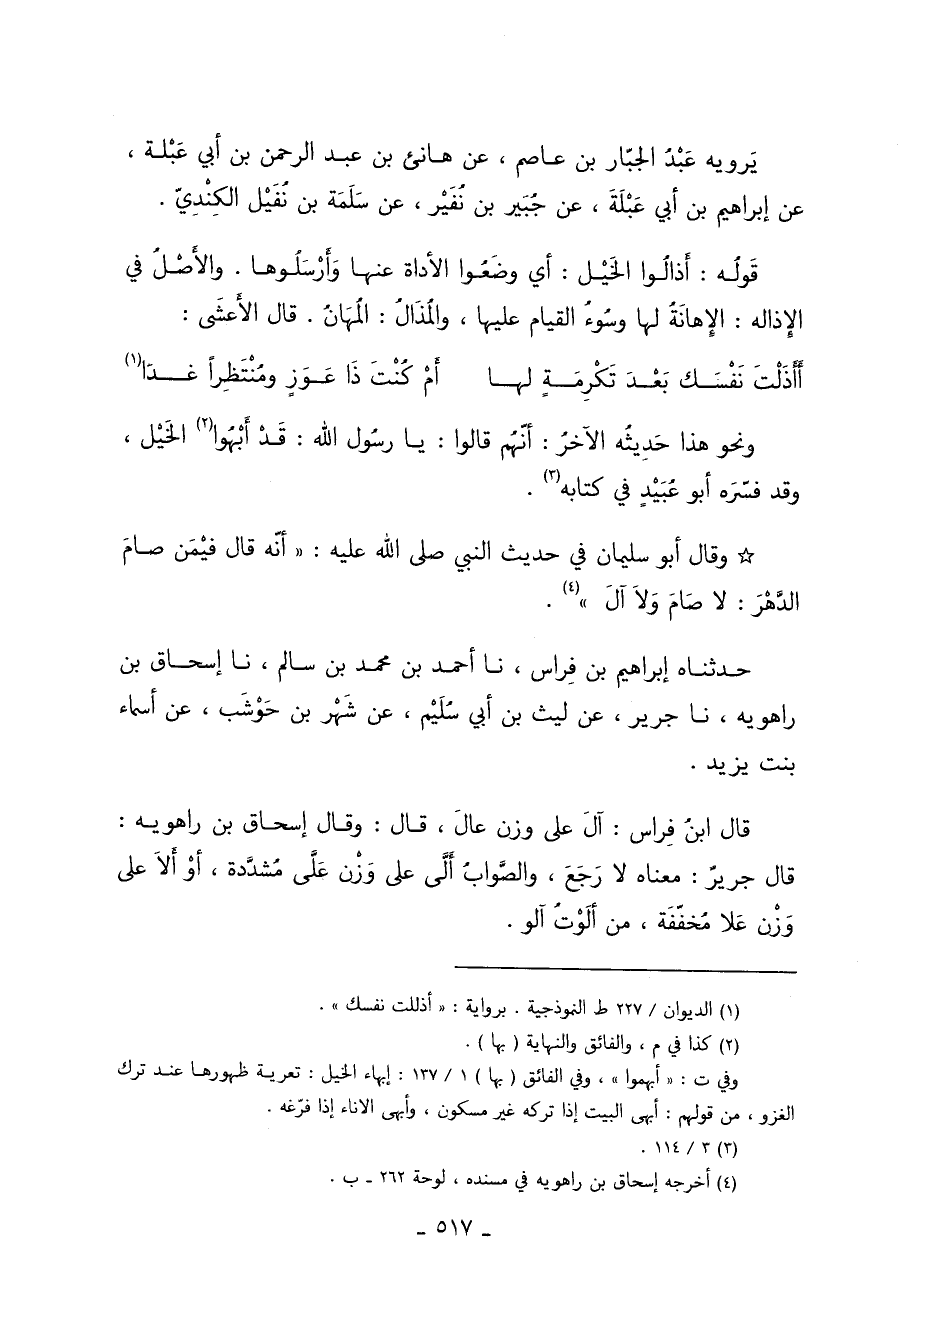 يَرويه عَبْدُ الجَبّار بن عاصم ، عن هانئ بن عبد الرحمن بن أبي عَبْلة ،
عن إبراهيم بن أبي عَبْلَةَ ، عن جُبَير بن نُفَيْر ، عن سَلَمَة بن نُفَيْل الكِنْدِيّ .
قَولُه : أَذالُوا الخَيْل : أي وضَعُوا الأداة عنها وَأَرْسَلُوها . والأَصْلُ في
الإِذاله : الإِهانَةُ لها وسُوءُ القيام عليها ، والمُذَالُ : المُهَانُ . قال الأَعشَى :
أَأَذَلْتَ نَفْسَك بَعْدَ تَكْرِمَةٍ لها أَمْ كُنْتَ ذَا عَوَزٍ ومُنْتَظِراً غَدَا(١)
ونحو هذا حَدِيثُه الآخرُ : أنّهم قالوا : يا رسُول الله : قَدْ أَبْهُوا(٢) الخَيْل ،
وقد فسّرَه أبو عُبَيْدٍ في كتابه(٣) .
☆ وقال أبو سليمان في حديث النبي صلى الله عليه : « أنّه قال فيْمَن صامَ
الدَّهْرَ : لا صَامَ وَلاَ آلَ »(٤) .
حدثناه إبراهيم بن فِراس ، نا أحمد بن محمد بن سالم ، نا إسحاق بن
راهويه ، نا جرير ، عن ليث بن أبي سُلَيْم ، عن شَهْر بن حَوْشَب ، عن أسماء
بنت يزيد .
قال ابنُ فِراس : آلَ على وزن عالَ ، قال : وقال إسحاق بن راهويه :
قال جريرٌ : معناه لا رَجَعَ ، والصَّوابُ أَلَّى على وَزْن عَلَّى مُشدَّدة ، أوْ أَلاَ على
وَزْن عَلا مُخفّفَة ، من أَلَوْتُ آلو .
(١) الديوان / ٢٢٧ ط النموذجية . برواية : « أذللت نفسك » .
(٢) كذا في م ، والفائق والنهاية ( بها ) .
وفي ت : « أبهموا » ، وفي الفائق ( بها ) ١ / ١٣٧ : إبهاء الخيل : تعرية ظهورها عند ترك
الغزو ، من قولهم : أبهى البيت إذا تركه غير مسكون ، وأبهى الاناء إذا فرّغه .
(٣) ٣ / ١١٤ .
(٤) أخرجه إسحاق بن راهويه في مسنده ، لوحة ٢٦٢ ـ ب .
ـ ٥١٧ ـ